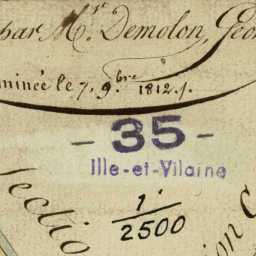 par Mr. Demolon, Géo
minée le 7. 9.bre 1812.
- 35 -
Ille-et-Vilaine
1
2500
Sectio
ion C